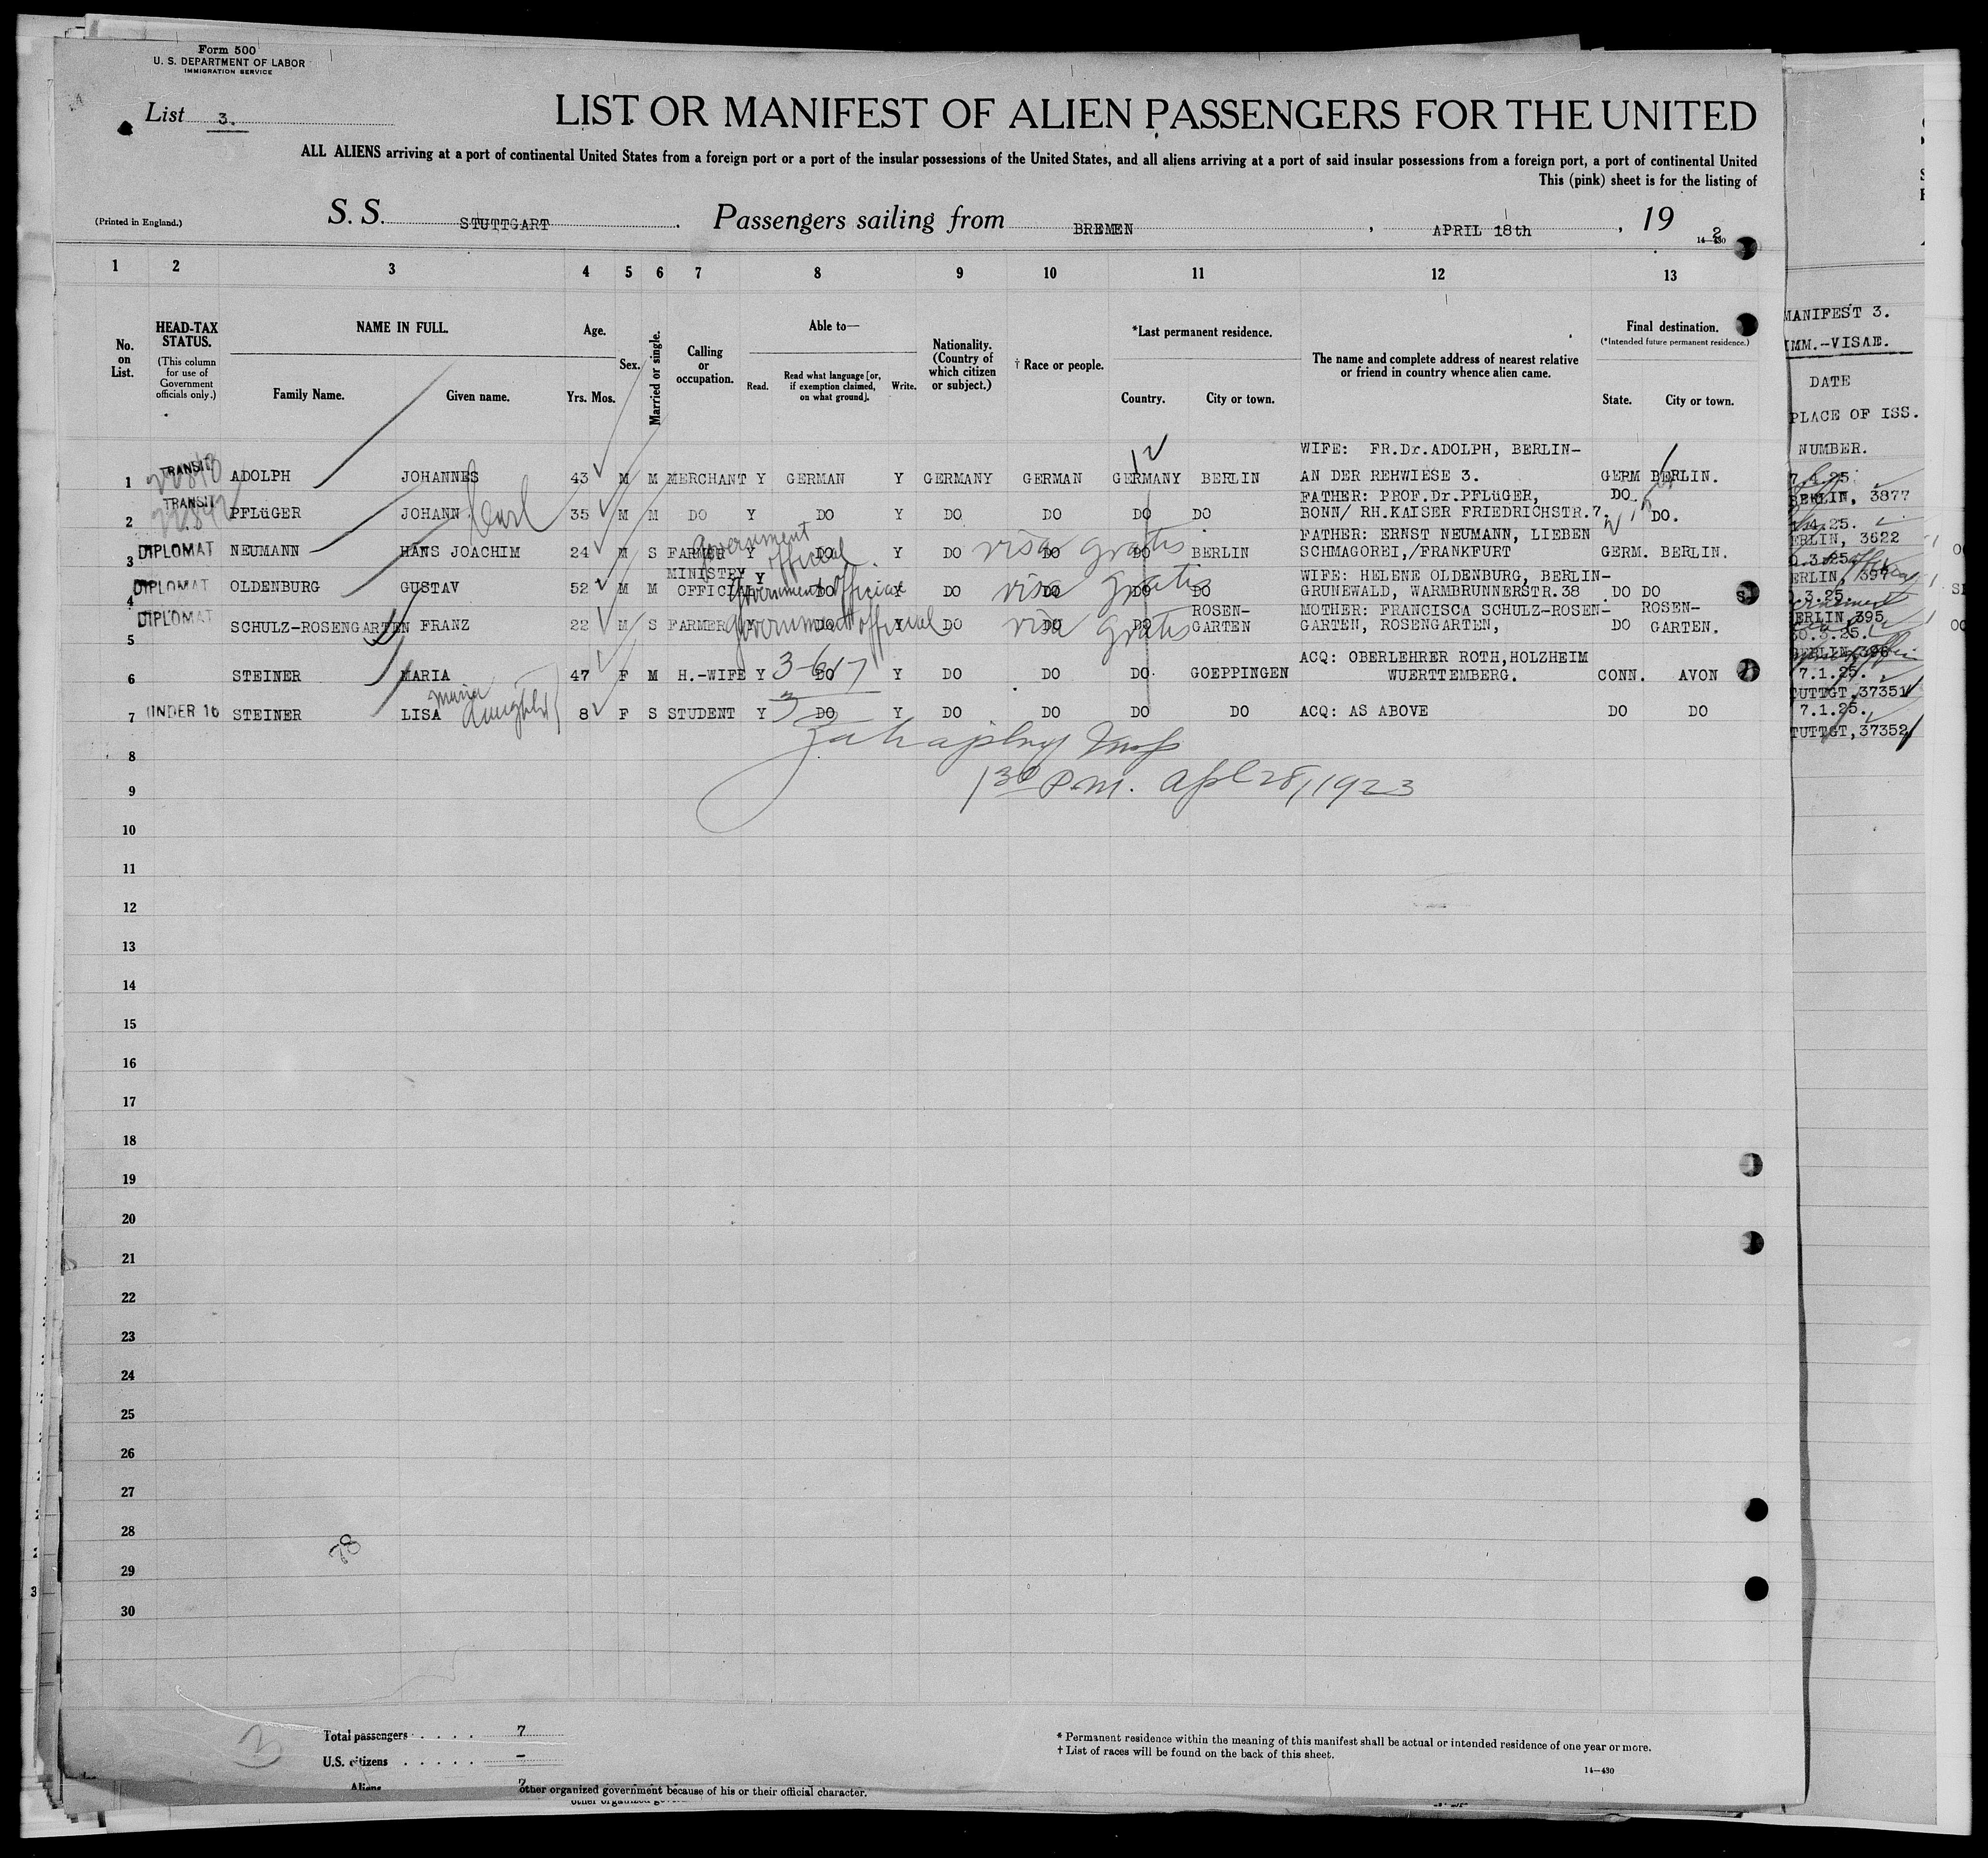 Form 500
U. S. DEPARTMENT OF LABOR
IMMIGRATION SERVICE
List 3.
LIST OR MANIFEST OF ALIEN PASSENGERS FOR THE UNITED
ALL ALIENS arriving at a port of continental United States from a foreign port or a port of the insular possessions of the United States, and all aliens arriving at a port of said insular possessions from a foreign port, a port of continental United
This (pink) sheet is for the listing of
(Printed in England.)
S. S. STUTTGART. Passengers sailing from BREMEN, APRIL 18th, 19 2
14—430
1 2 3 4 5 6 7 8 9 10 11 12 13
No. on List.
HEAD-TAX STATUS.
(This column for use of Government officials only.)
NAME IN FULL.
Family Name. Given name.
Age.
Yrs. Mos.
Sex.
Married or single.
Calling or occupation.
Able to—
Read. Read what language [or, if exemption claimed, on what ground]. Write.
Nationality. (Country of which citizen or subject.)
† Race or people.
*Last permanent residence.
Country. City or town.
The name and complete address of nearest relative or friend in country whence alien came.
Final destination.
(*Intended future permanent residence.)
State. City or town.
WIFE: FR.Dr.ADOLPH, BERLIN-
1 TRANSIT ADOLPH JOHANNES 43 M M MERCHANT Y GERMAN Y GERMANY GERMAN GERMANY BERLIN AN DER REHWIESE 3. GERM BERLIN.
FATHER: PROF.Dr.PFLüGER,
2 TRANSIT PFLüGER JOHANN Carl 35 M M DO Y DO Y DO DO DO DO BONN/ RH.KAISER FRIEDRICHSTR.7. DO. DO.
FATHER: ERNST NEUMANN, LIEBEN
3 DIPLOMAT NEUMANN HANS JOACHIM 24 M S FARMER Government official Y DO Y DO visa gratis DO DO BERLIN SCHMAGOREI,/FRANKFURT GERM. BERLIN.
WIFE: HELENE OLDENBURG, BERLIN-
4 DIPLOMAT OLDENBURG GUSTAV 52 M M MINISTRY OFFICIAL Government official Y DO Y DO visa gratis DO DO DO GRUNEWALD, WARMBRUNNERSTR.38 DO DO
MOTHER: FRANCISCA SCHULZ-ROSEN-
5 DIPLOMAT SCHULZ-ROSENGARTEN FRANZ 22 M S FARMER Government official Y DO Y DO visa gratis DO DO ROSEN-GARTEN GARTEN, ROSENGARTEN, DO ROSEN-GARTEN.
ACQ: OBERLEHRER ROTH,HOLZHEIM
6 STEINER MARIA 47 F M H.-WIFE Y 3-617 DO Y DO DO DO GOEPPINGEN WUERTTEMBERG. CONN. AVON
7 UNDER 16 STEINER LISA Maria daughter 8 F S STUDENT Y 3 DO Y DO DO DO DO ACQ: AS ABOVE DO DO
8
9 1 30 P.M. Apl 28, 1923
10
11
12
13
14
15
16
17
18
19
20
21
22
23
24
25
26
27
28
29
30
78
3
Total passengers 7
U.S. citizens -
Aliens 7
other organized government because of his or their official character.
* Permanent residence within the meaning of this manifest shall be actual or intended residence of one year or more.
† List of races will be found on the back of this sheet.
14—430
MANIFEST 3.
IMM.-VISAE.
DATE
PLACE OF ISS.
NUMBER.
7.4.25.
BERLIN, 3877
1.4.25.
ERLIN, 3622
0.3.25.
ERLIN, 397
.3.25.
ERLIN,395
30.3.25.
BERLIN,396
7.1.25.
TUTTGT,37351
7.1.25.
TUTTGT,37352